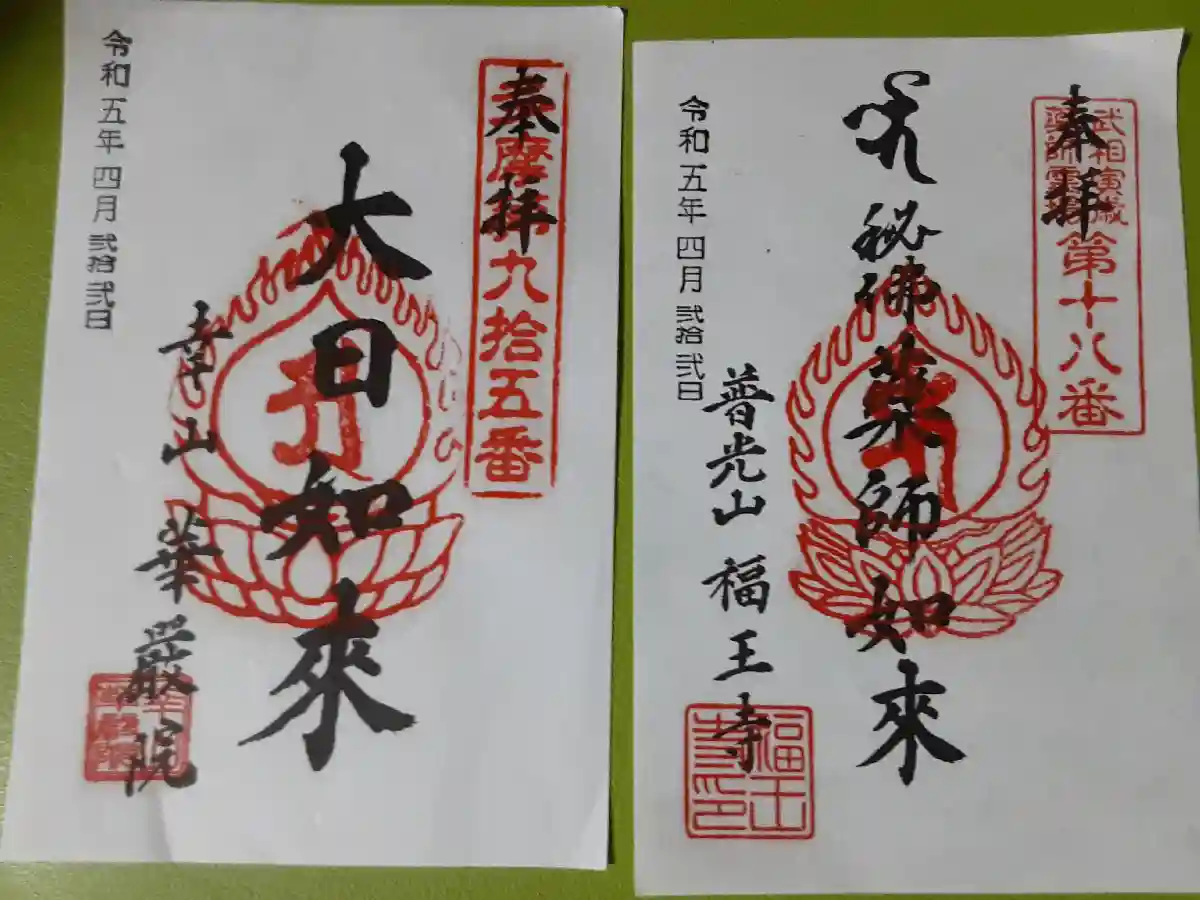 奉拝
九拾五番
大日如來
幸山 華嚴院
令和五年四月弐拾弐日
奉拝
武相寅歳
薬師霊
第十八番
秘佛薬師如來
普光山 福王寺
福王
寺印
令和五年四月弐拾弐日